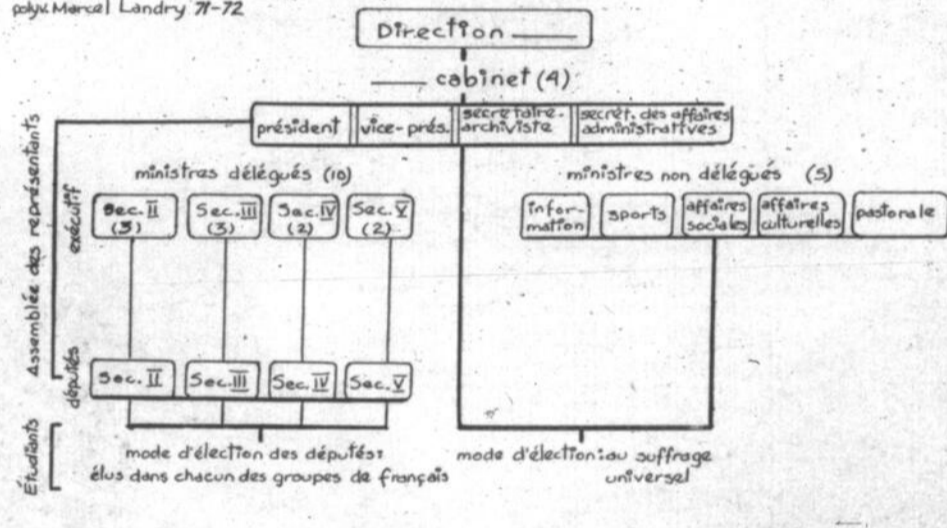 polyv. Marcel Landry 71-72
Direction
cabinet (4)
président
vice-prés.
secrétaire-
archiviste
secrét. des affaires
administratives
ministres délégués (10)
ministres non délégués (5)
Sec. II
(3)
Sec. III
(3)
Sec. IV
(2)
Sec. V
(2)
infor-
mation
sports
affaires
sociales
affaires
culturelles
pastorale
Assemblée des représentants
exécutif
députés
Sec. II
Sec. III
Sec. IV
Sec. V
Étudiants
mode d'élection des députés:
élus dans chacun des groupes de français
mode d'élection: au suffrage
universel